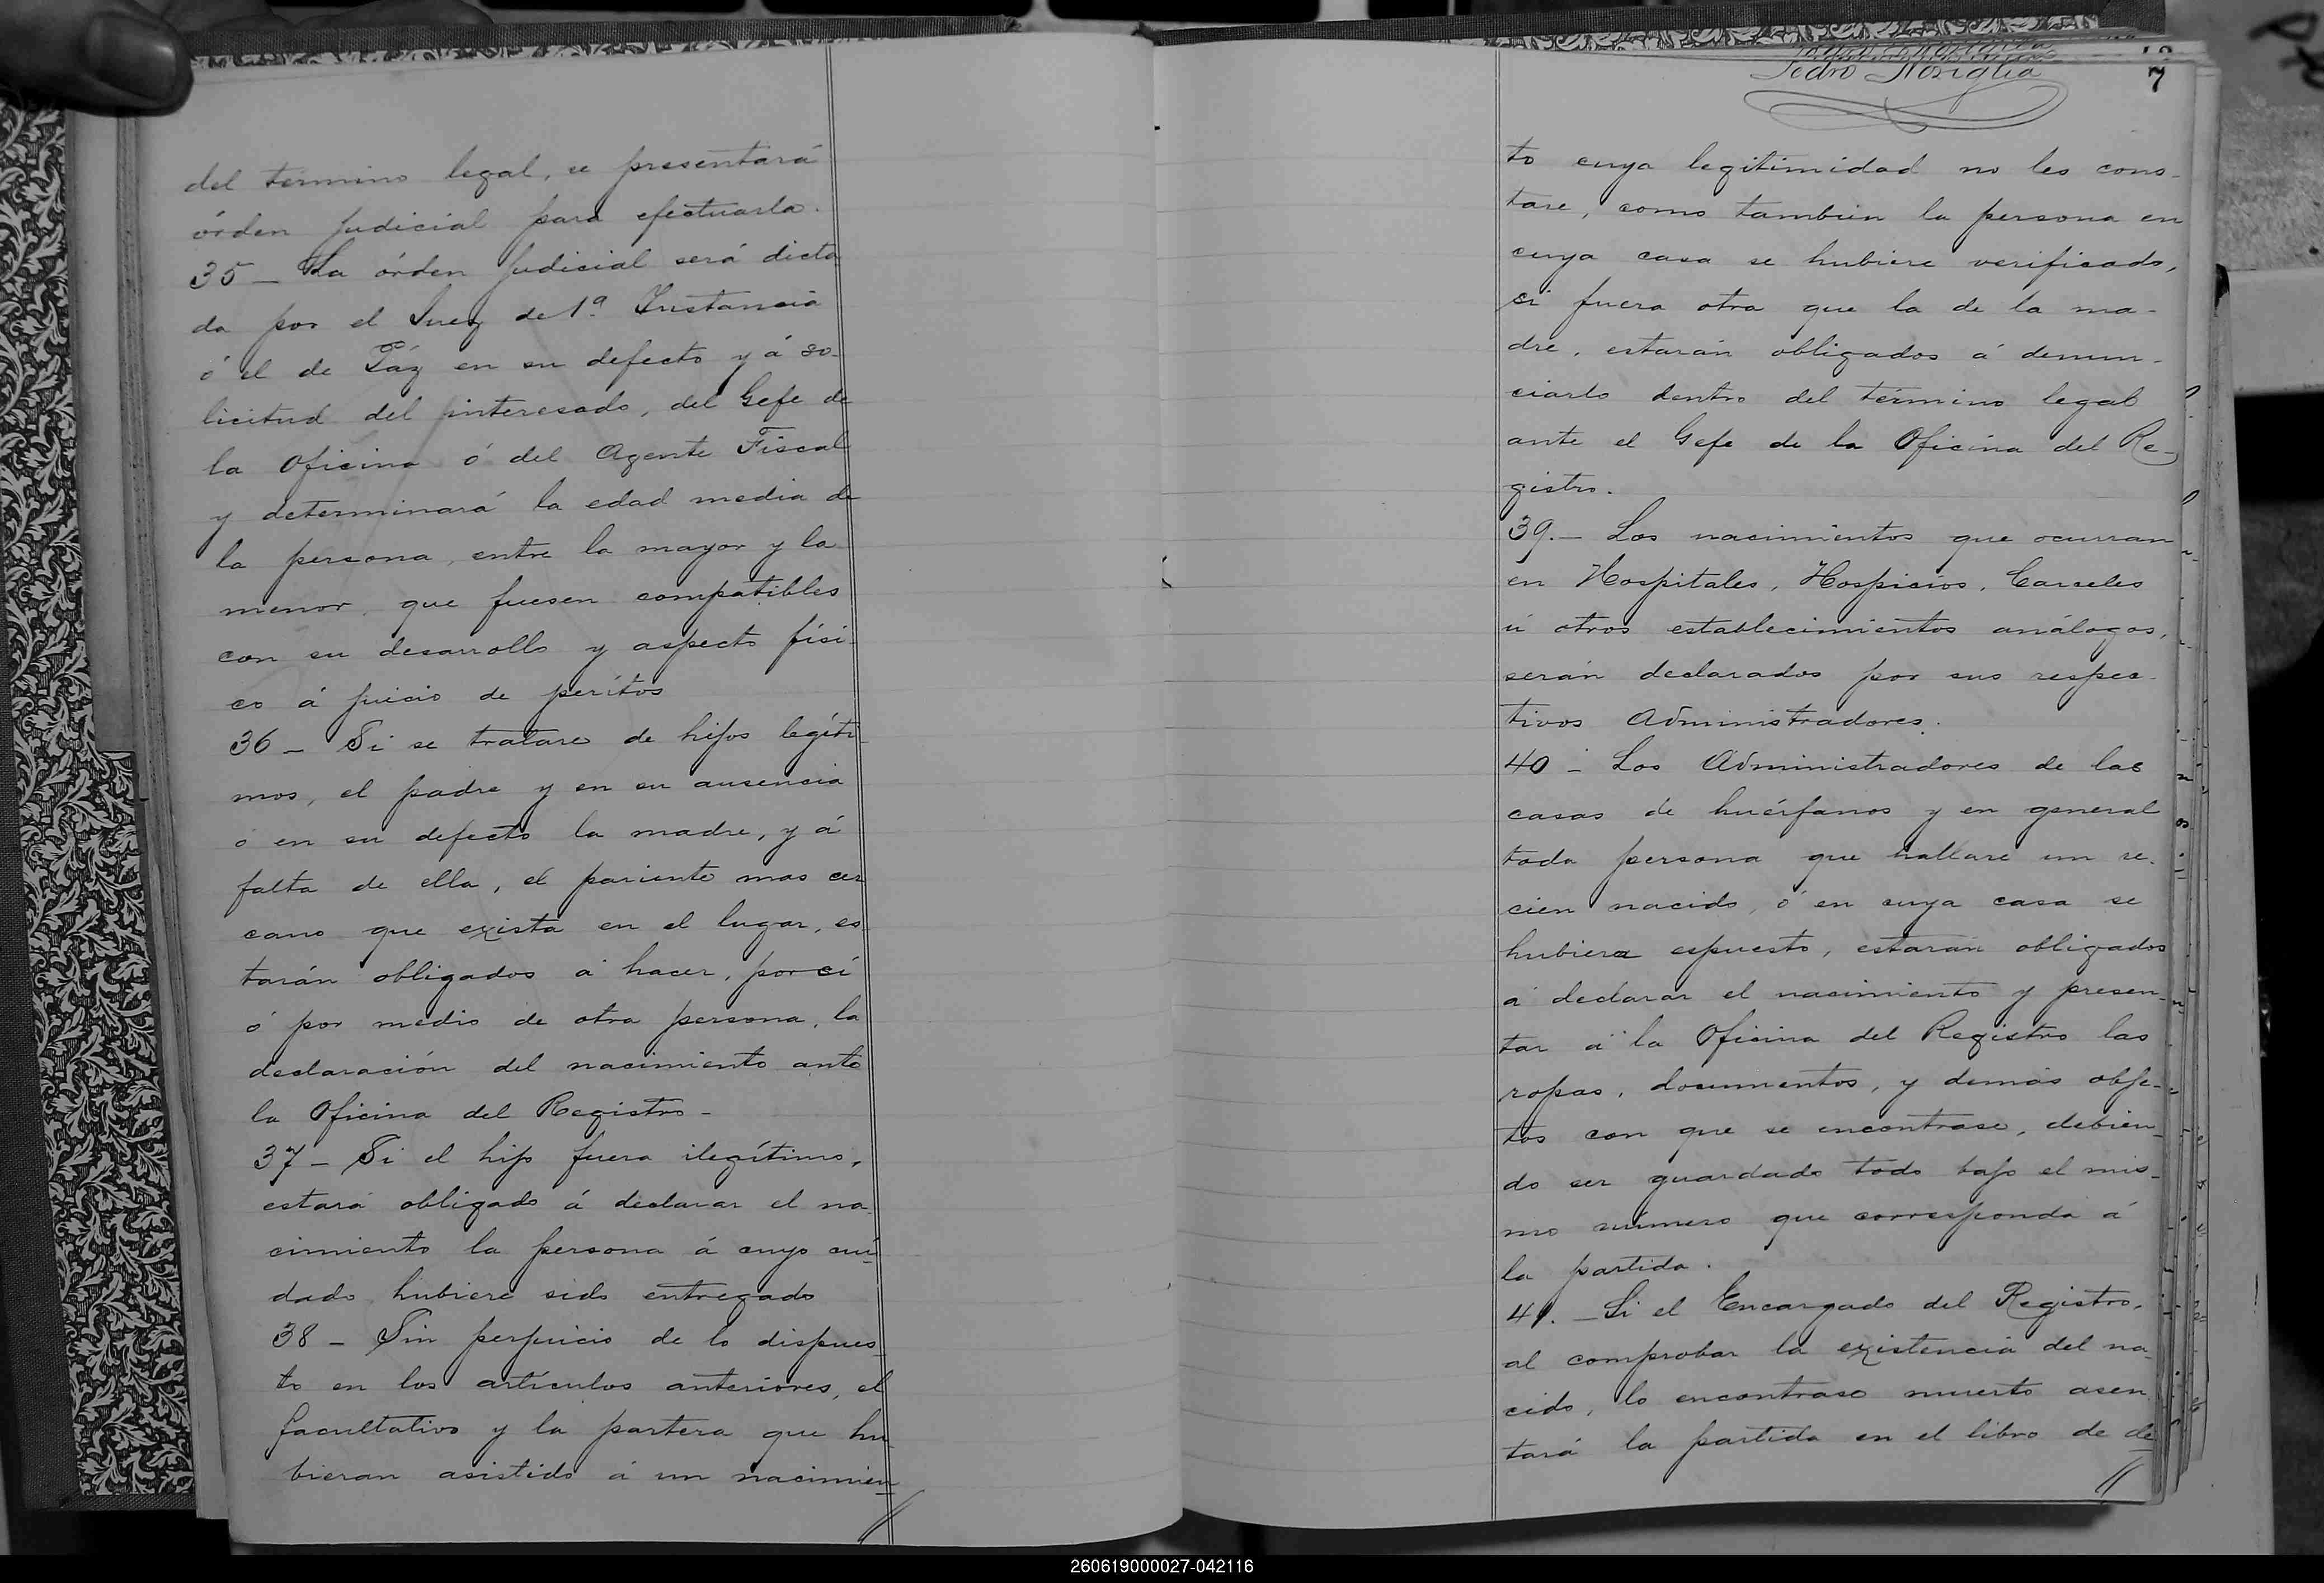 del termino legal, se presentará
órden judicial para efectuarla.
35 - La órden judicial será dicta
da por el Juez de 1ª Instancia
ó el de Páz en su defecto y á so-
licitud del interesado, del Gefe de
la Oficina ó del Agente Fiscal
y determinará la edad media de
la persona, entre la mayor y la
menor, que fuesen compatibles
con su desarrollo y aspecto físi-
co á juicio de peritos
36 - Si se tratare de hijos legíti
mos, el padre y en su ausencia
ó en su defecto la madre, y á
falta de ella, el pariente mas cer
cano que exista en el lugar, es
tarán obligados á hacer, por sí
ó por medio de otra persona, la
declaración del nacimiento ante
la Oficina del Registro -
37 - Si el hijo fuera ilegítimo,
estará obligado á declarar el na
cimiento la persona á cuyo cui
dado hubiere sido entregado
38 - Sin perjuicio de lo dispues
to en los artículos anteriores, el
facultativo y la partera que hu
bieran asistido á un nacimien
Pedro Noriglia
7
to cuya legitimidad no les cons-
tare, como tambien la persona en
cuya casa se hubiere verificado,
si fuera otra que la de la ma-
dre, estarán obligados á denun-
ciarlo dentro del término legal
ante el Gefe de la Oficina del Re-
gistro.
39. - Los nacimientos que ocurran
en Hospitales, Hospicios, Carceles
ú otros establecimientos análogos,
serán declarados por sus respec-
tivos Administradores.
40 - Los Administradores de las
casas de huérfanos y en general
toda persona que hallare un re-
cien nacido, ó en cuya casa se
hubiera espuesto, estarán obligados
á declarar el nacimiento y presen-
tar á la Oficina del Registro las
ropas, documentos, y demás obje-
tos con que se encontrase, debien-
do ser guardado todo bajo el mis-
mo número que corresponda á
la partida.
41. - Si el Encargado del Registro,
al comprobar la existencia del na-
cido, lo encontrase muerto asen
tará la partida en el libro de de
260619000027-042116